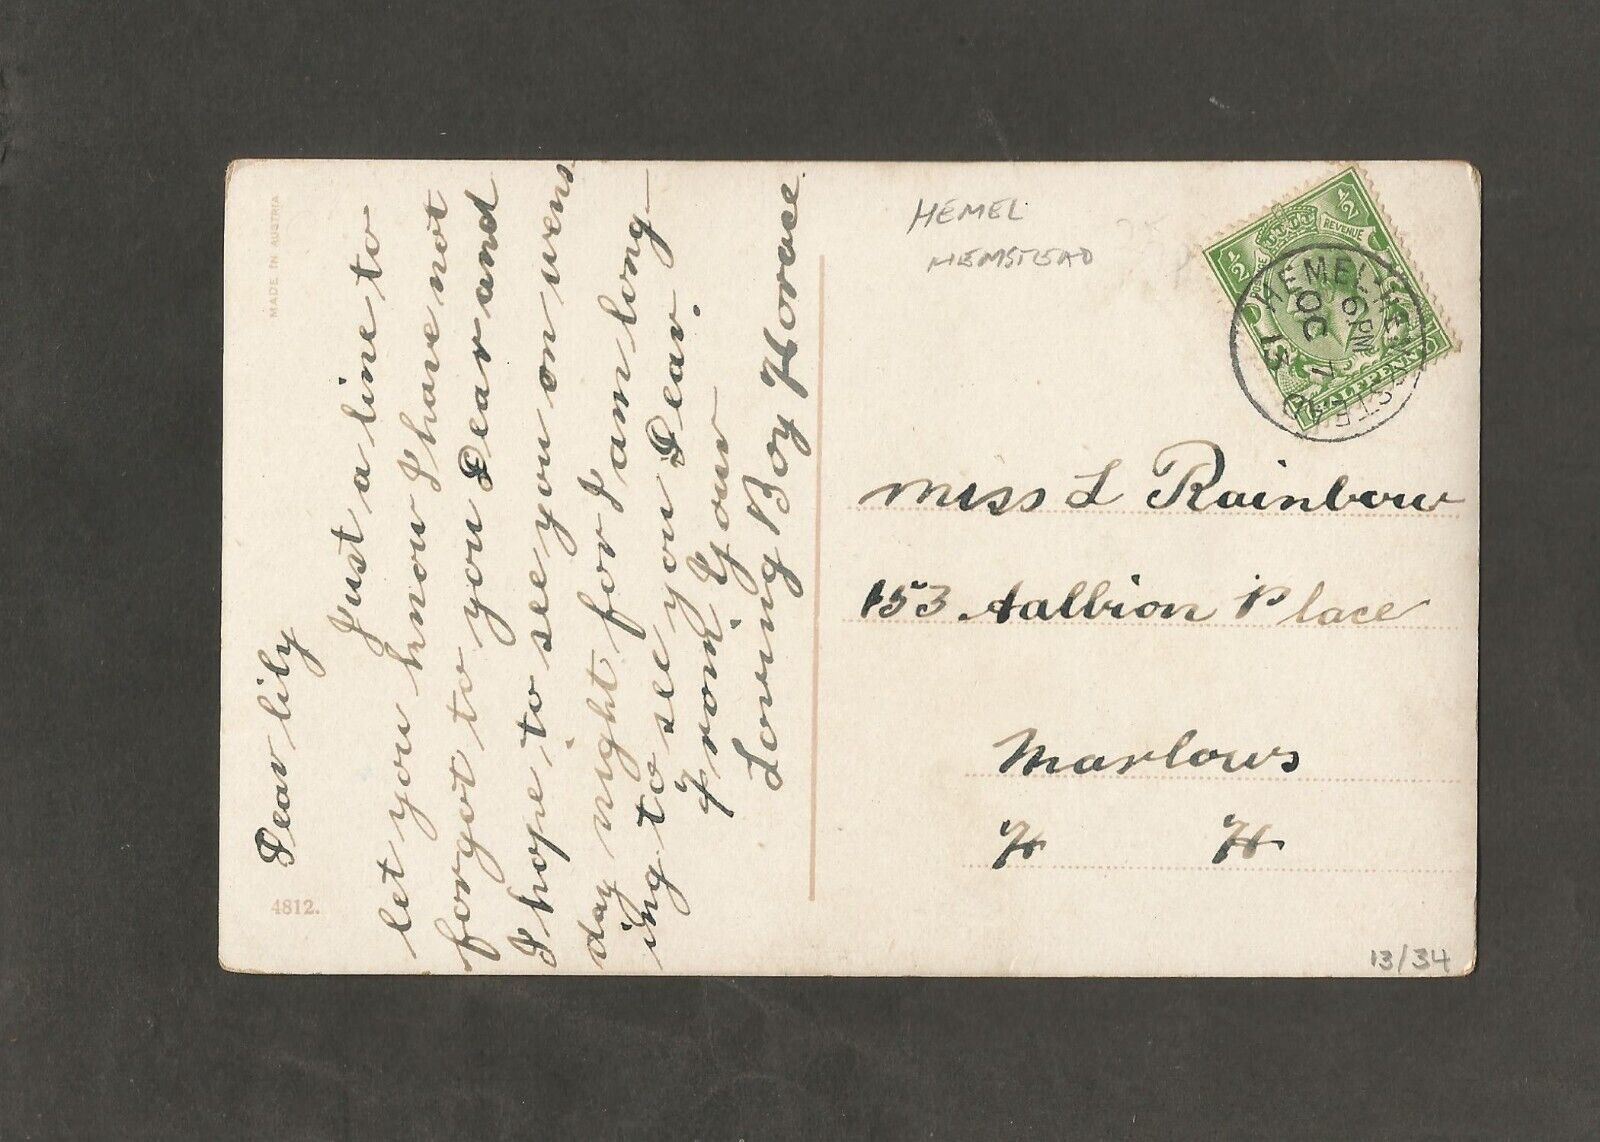 MADE IN AUSTRIA
4812.
Dear lily
Just a line to
let you know I have not
forgot to you Dear and
I hope to see you on wens
day night for I am long-
ing to see you Dear.
From Your
Loving Boy Horace
HEMEL
HEMSTEAD
½ ½
REVENUE
HEMEL HEMPSTEAD
6 PM
7 OC
13
Miss L Rainbow
153 Aalbion Place
Marlows
H H
13/34